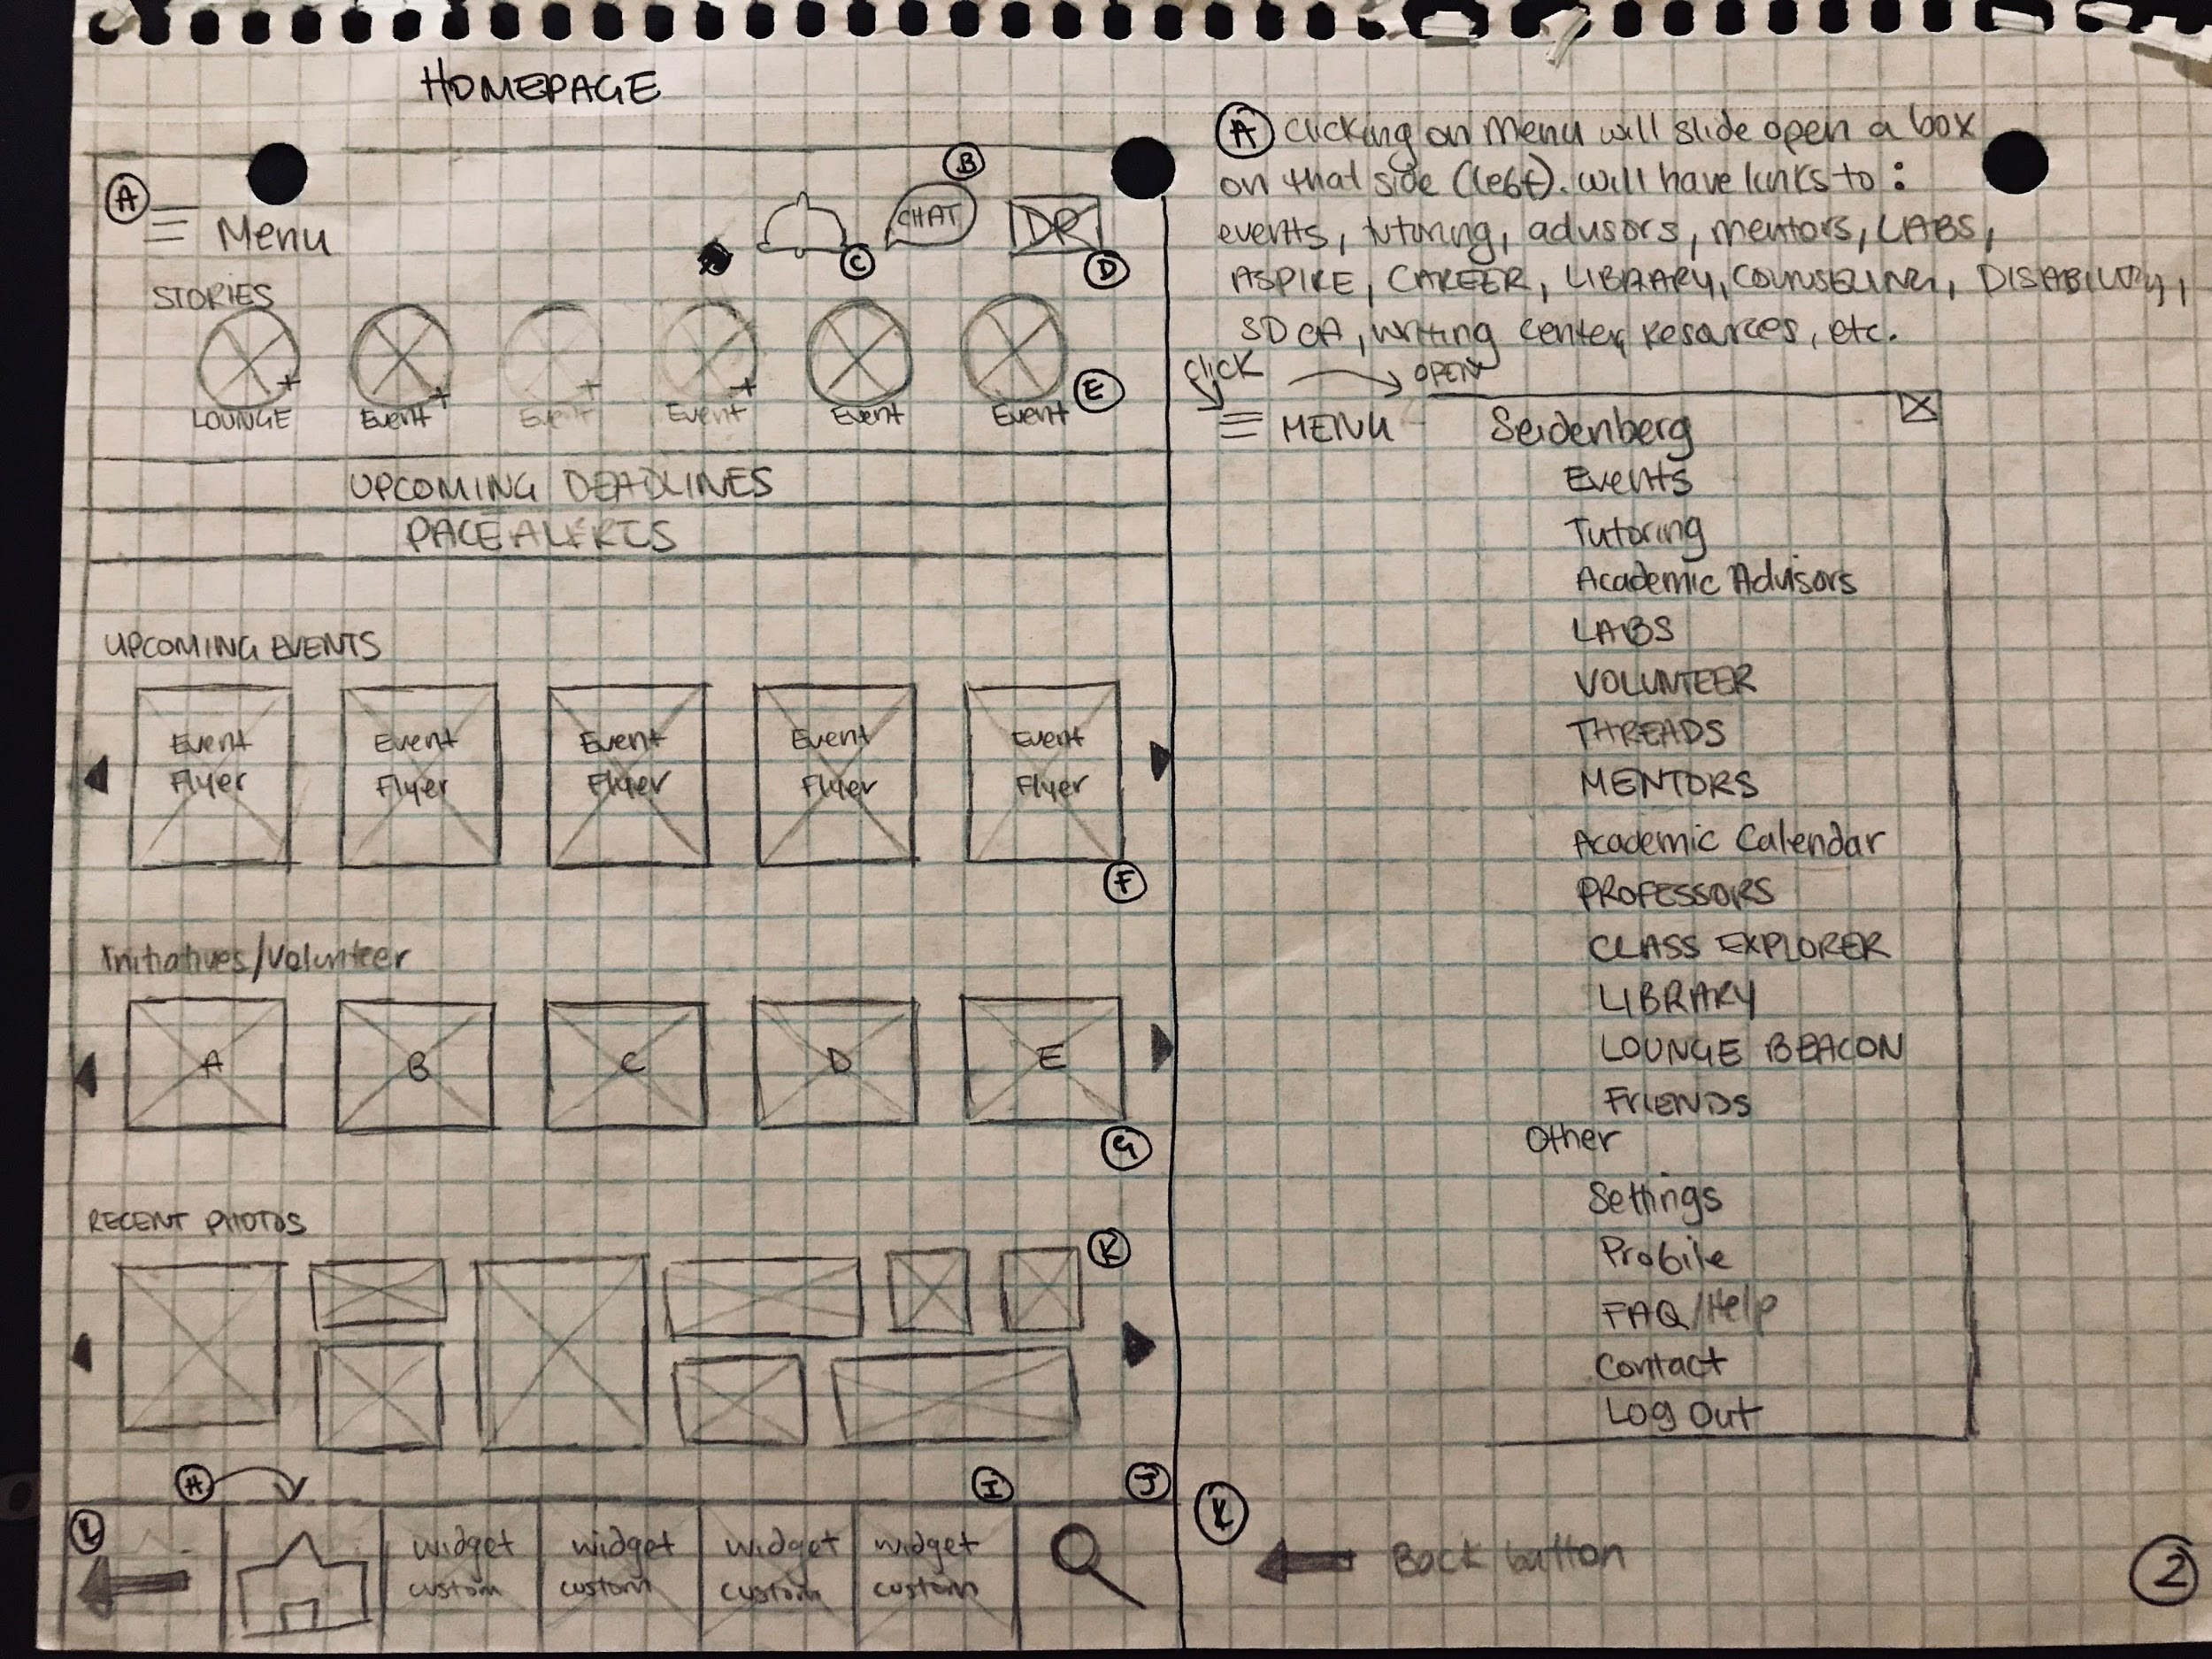 HOMEPAGE
A
Menu
B
CHAT
C
DR
D
STORIES
LOUNGE
Event
Event
Event
Event
Event
E
UPCOMING DEADLINES
PACE ALERTS
UPCOMING EVENTS
Event Flyer
Event Flyer
Event Flyer
Event Flyer
Event Flyer
F
Initiatives/Volunteer
A
B
C
D
E
G
RECENT PHOTOS
K
H
I
J
L
widget custom
widget custom
widget custom
widget custom
A clicking on Menu will slide open a box
on that side (left). will have links to:
events, tutoring, advisors, mentors, LABS,
ASPIRE, CAREER, LIBRARY, COUNSELING, DISABILITY,
SDCA, writing center, resources, etc.
click
OPEN
MENU
Seidenberg
Events
Tutoring
Academic Advisors
LABS
VOLUNTEER
THREADS
MENTORS
Academic Calendar
PROFESSORS
CLASS EXPLORER
LIBRARY
LOUNGE BEACON
FRIENDS
Other
Settings
Profile
FAQ/Help
Contact
Log Out
Back button
2